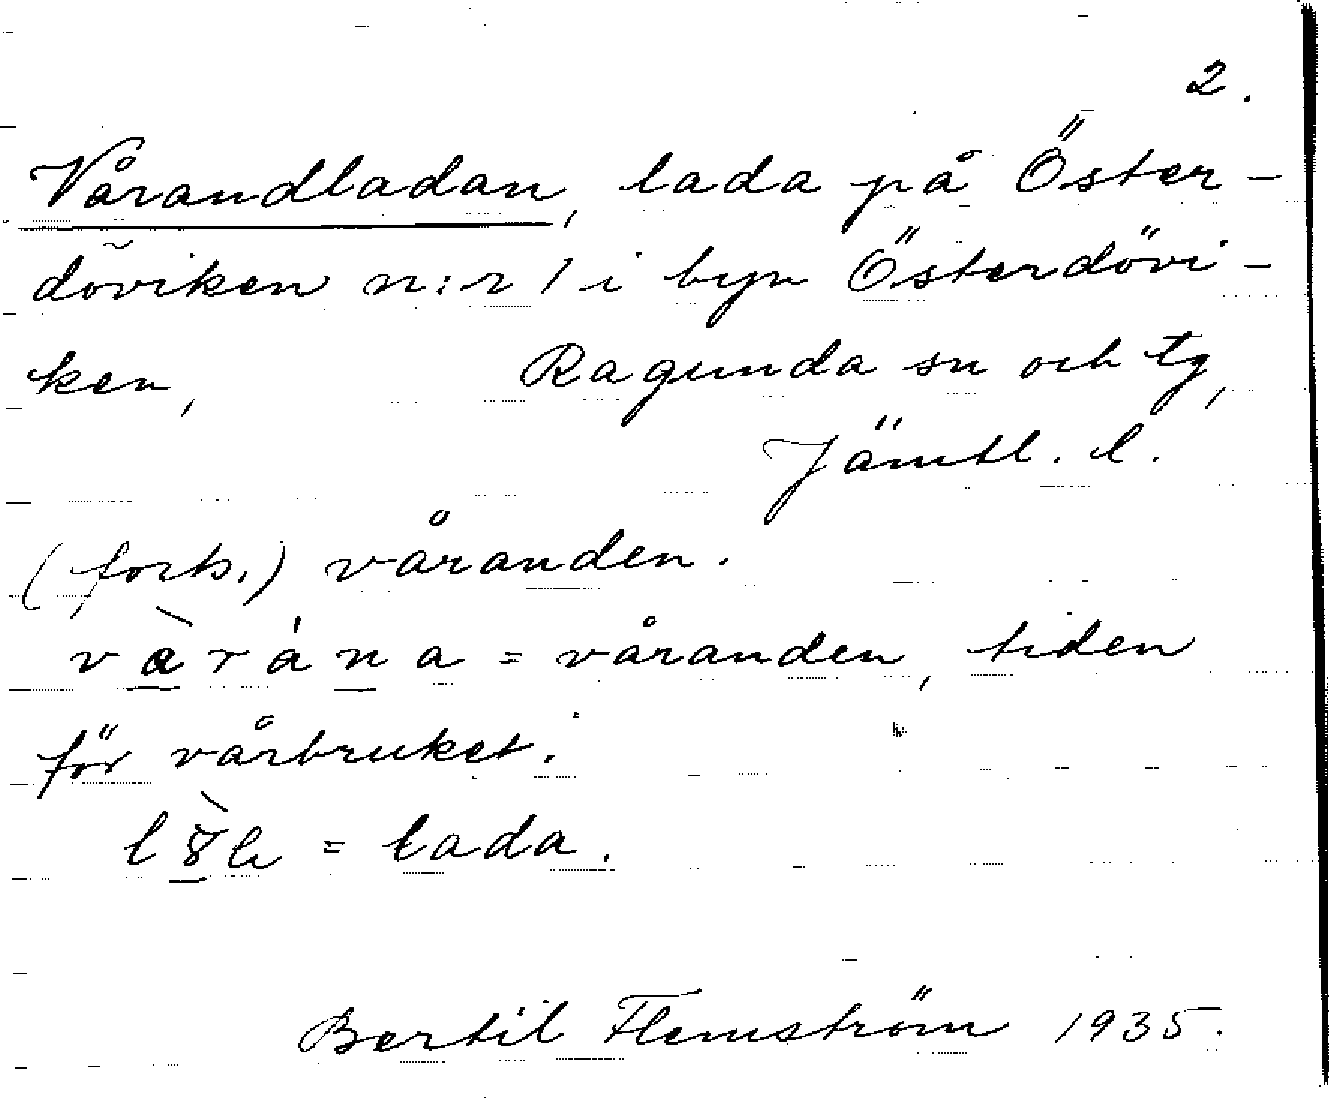 2.
Vårandladan, lada på Öster-
döviken n:r 1 i byn Österdövi-
ken, Ragunda sn och tg,
Jämtl. l.
(forts.) våranden.
= våranden, tiden
för vårbruket.
= lada.
Bertil Flemström 1935.